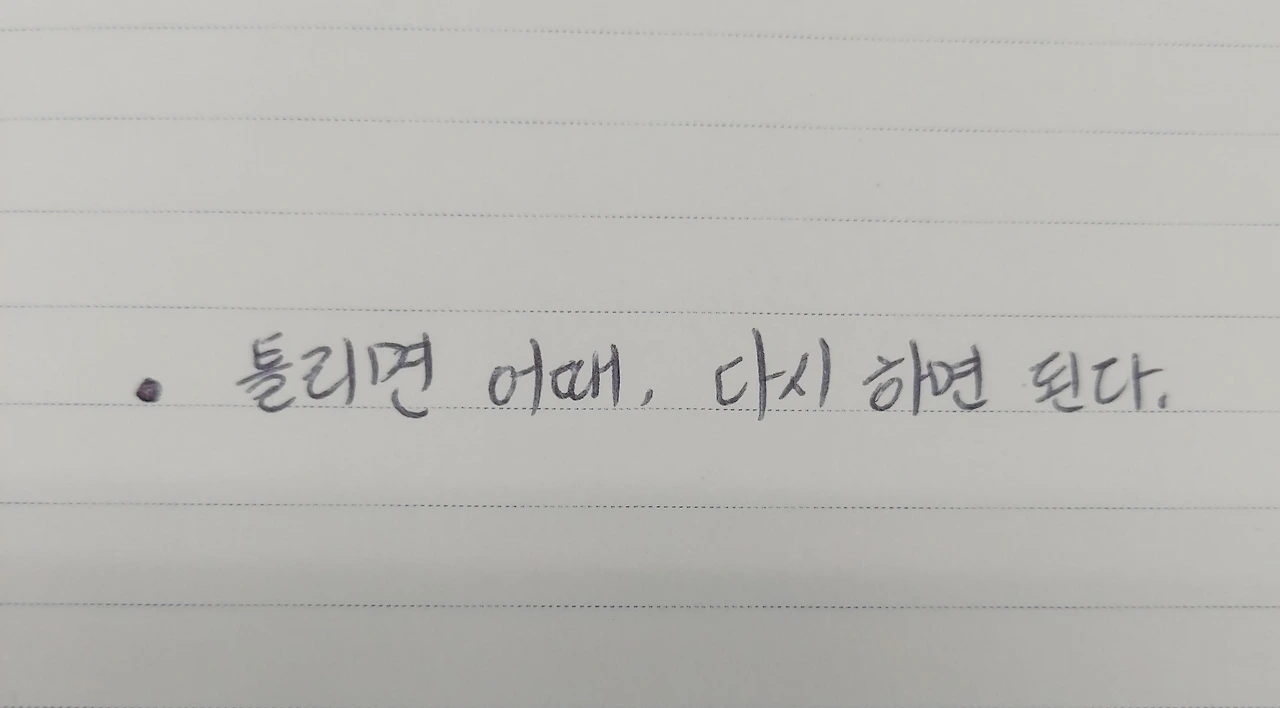 • 틀리면 어때, 다시 하면 된다.